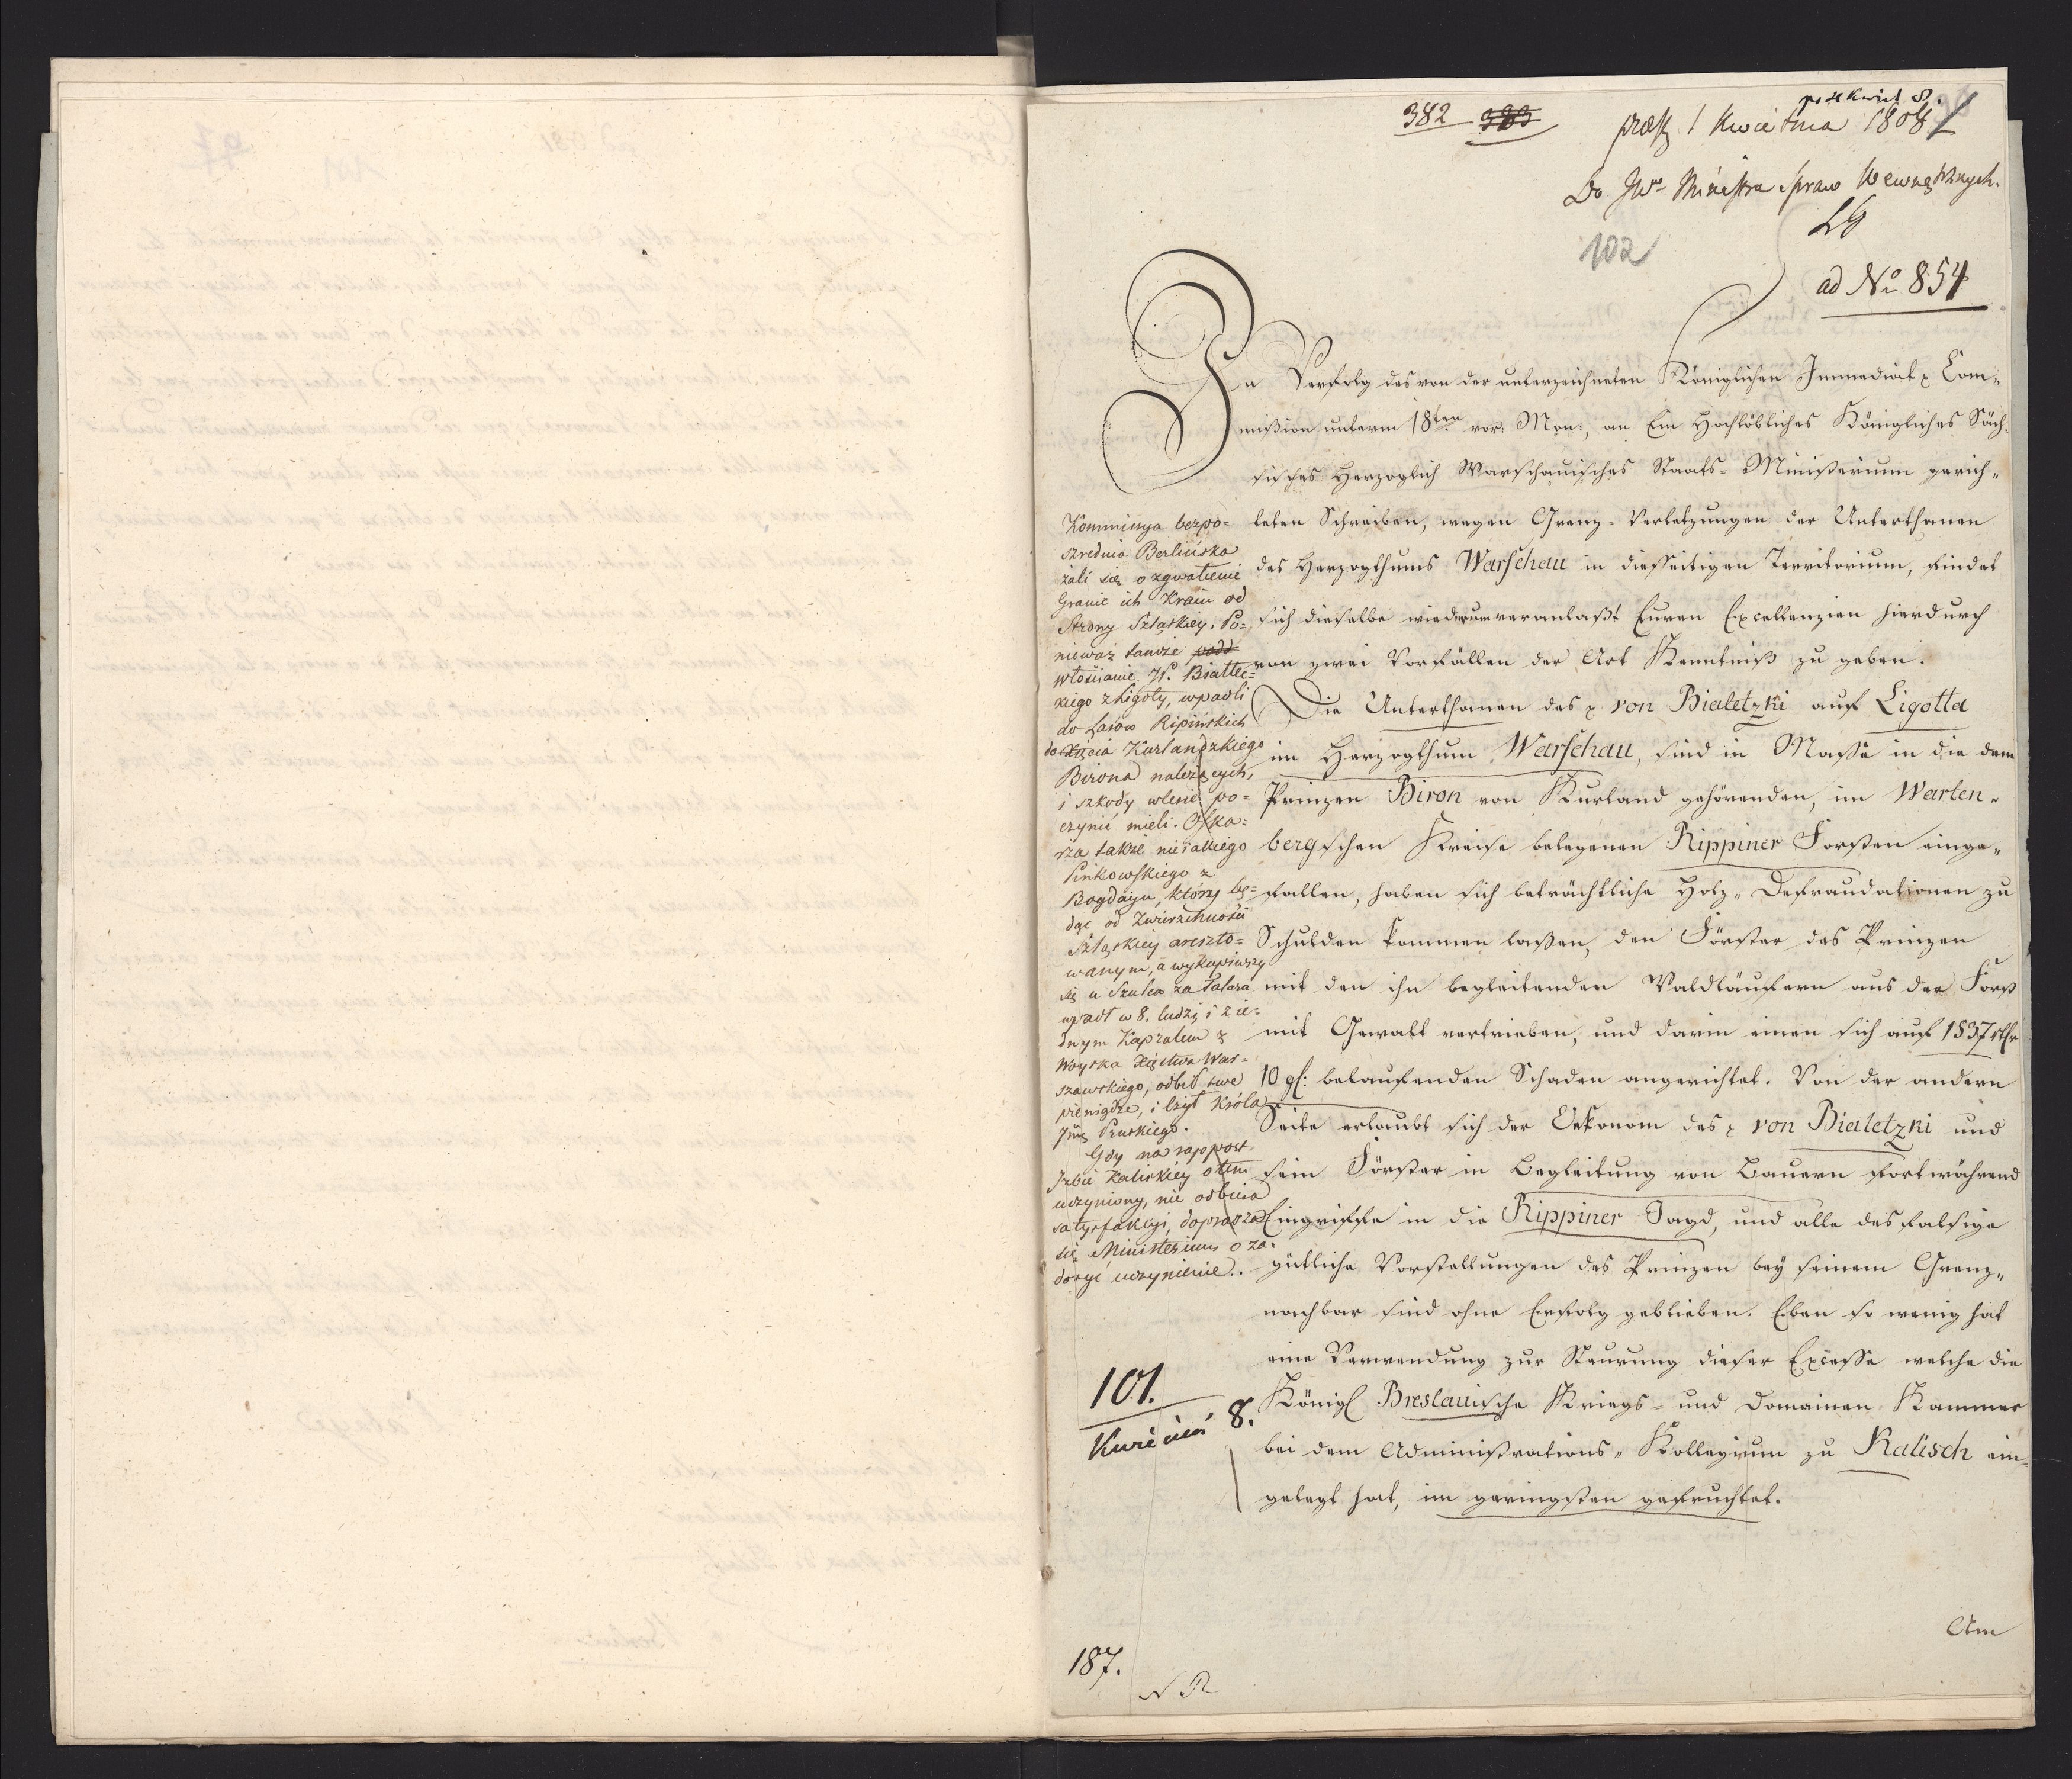 382 383
præs 1 Kwietnia 1808
Do JW Ministra Spraw Wewnętrznych.
102
ad No 854
In Verfolg des von der unterzeichneten Königlichen Immediat Com-
mißion unterm 18ten vor: Mon:, an Ein Hochlöbliches Königliches Säch-
sisches Herzoglich Warschauisches Staats-Ministerium gerich-
teten Schreiben, wegen Grenz-Verletzungen der Unterthanen
des Herzogthums Warschau in diesseitigen Territorium, findet
sich dieselbe wiederum veranlaßt Euren Excellenzien hierdurch
von zwei Vorfällen der Art Kenntniß zu geben.
Die Unterthanen des von Bialetzki auf Ligotta
im Herzogthum Warschau, sind in Masse in die dem
Prinzen Biron von Kurland gehörenden, im Warten-
bergschen Kreise belegenen Rippiner Forsten einge-
fallen, haben sich beträchtliche Holz-Defraudationen zu
Schulden kommen laßen, den Förster des Prinzen
mit den ihn begleitenden Waldläufern aus der Forst
mit Gewalt vertrieben, und darin einen sich auf 1537 rthr
10 gl: belaufenden Schaden angerichtet. Von der andern
Seite erlaubt sich der Oekonom des von Bialetzki und
sein Förster in Begleitung von Bauern fortwährend
Eingriffe in die Rippiner Jagd, und alle desfalsige
gütliche Vorstellungen des Prinzen bey seinem Grenz-
nachbar sind ohne Erfolg geblieben. Eben so wenig hat
eine Verwendung zur Steurung dieser Excesse welche die
Königl Breslauische Kriegs- und Domainen Kammer
bei dem Administrations-Kollegium zu Kalisch ein-
gelegt hat, im geringsten gefruchtet.
Am
Kommissya bezpo-
szrednia Berlińska
żali się o zgwałcenie
Granic ich Kraiu od
Strony Szląskiey. Po-
nieważ tamże
włościanie JP. Biallec-
kiego z Ligoty, wpadli
do Lasów Ripińskich
do Xięcia Kurlandzkiego
Birona należących,
i szkody w lesie po-
czynić mieli. Oska-
rża także nieiakiego
Pinkowskiego z
Bogdaju, który bę-
dąc od Zwierzchności
Szląskiey areszto-
wanym, a wykupiwszy
się u Szulca za Talara
wpadł w 8. ludzi i z ie-
dnym Kapralem z
Woyska Xięstwa War-
szawskiego, odbił swe
pieniądze, i lżył Króla
Jmę Pruskiego.
Gdy na rapport
Izbie Kaliskiey o tem
uczyniony, nie odbiera
satysfakcyi, doprasza
się Ministerium o za-
dosyć uczynienie.
101.
Kwiecień 8.
187.